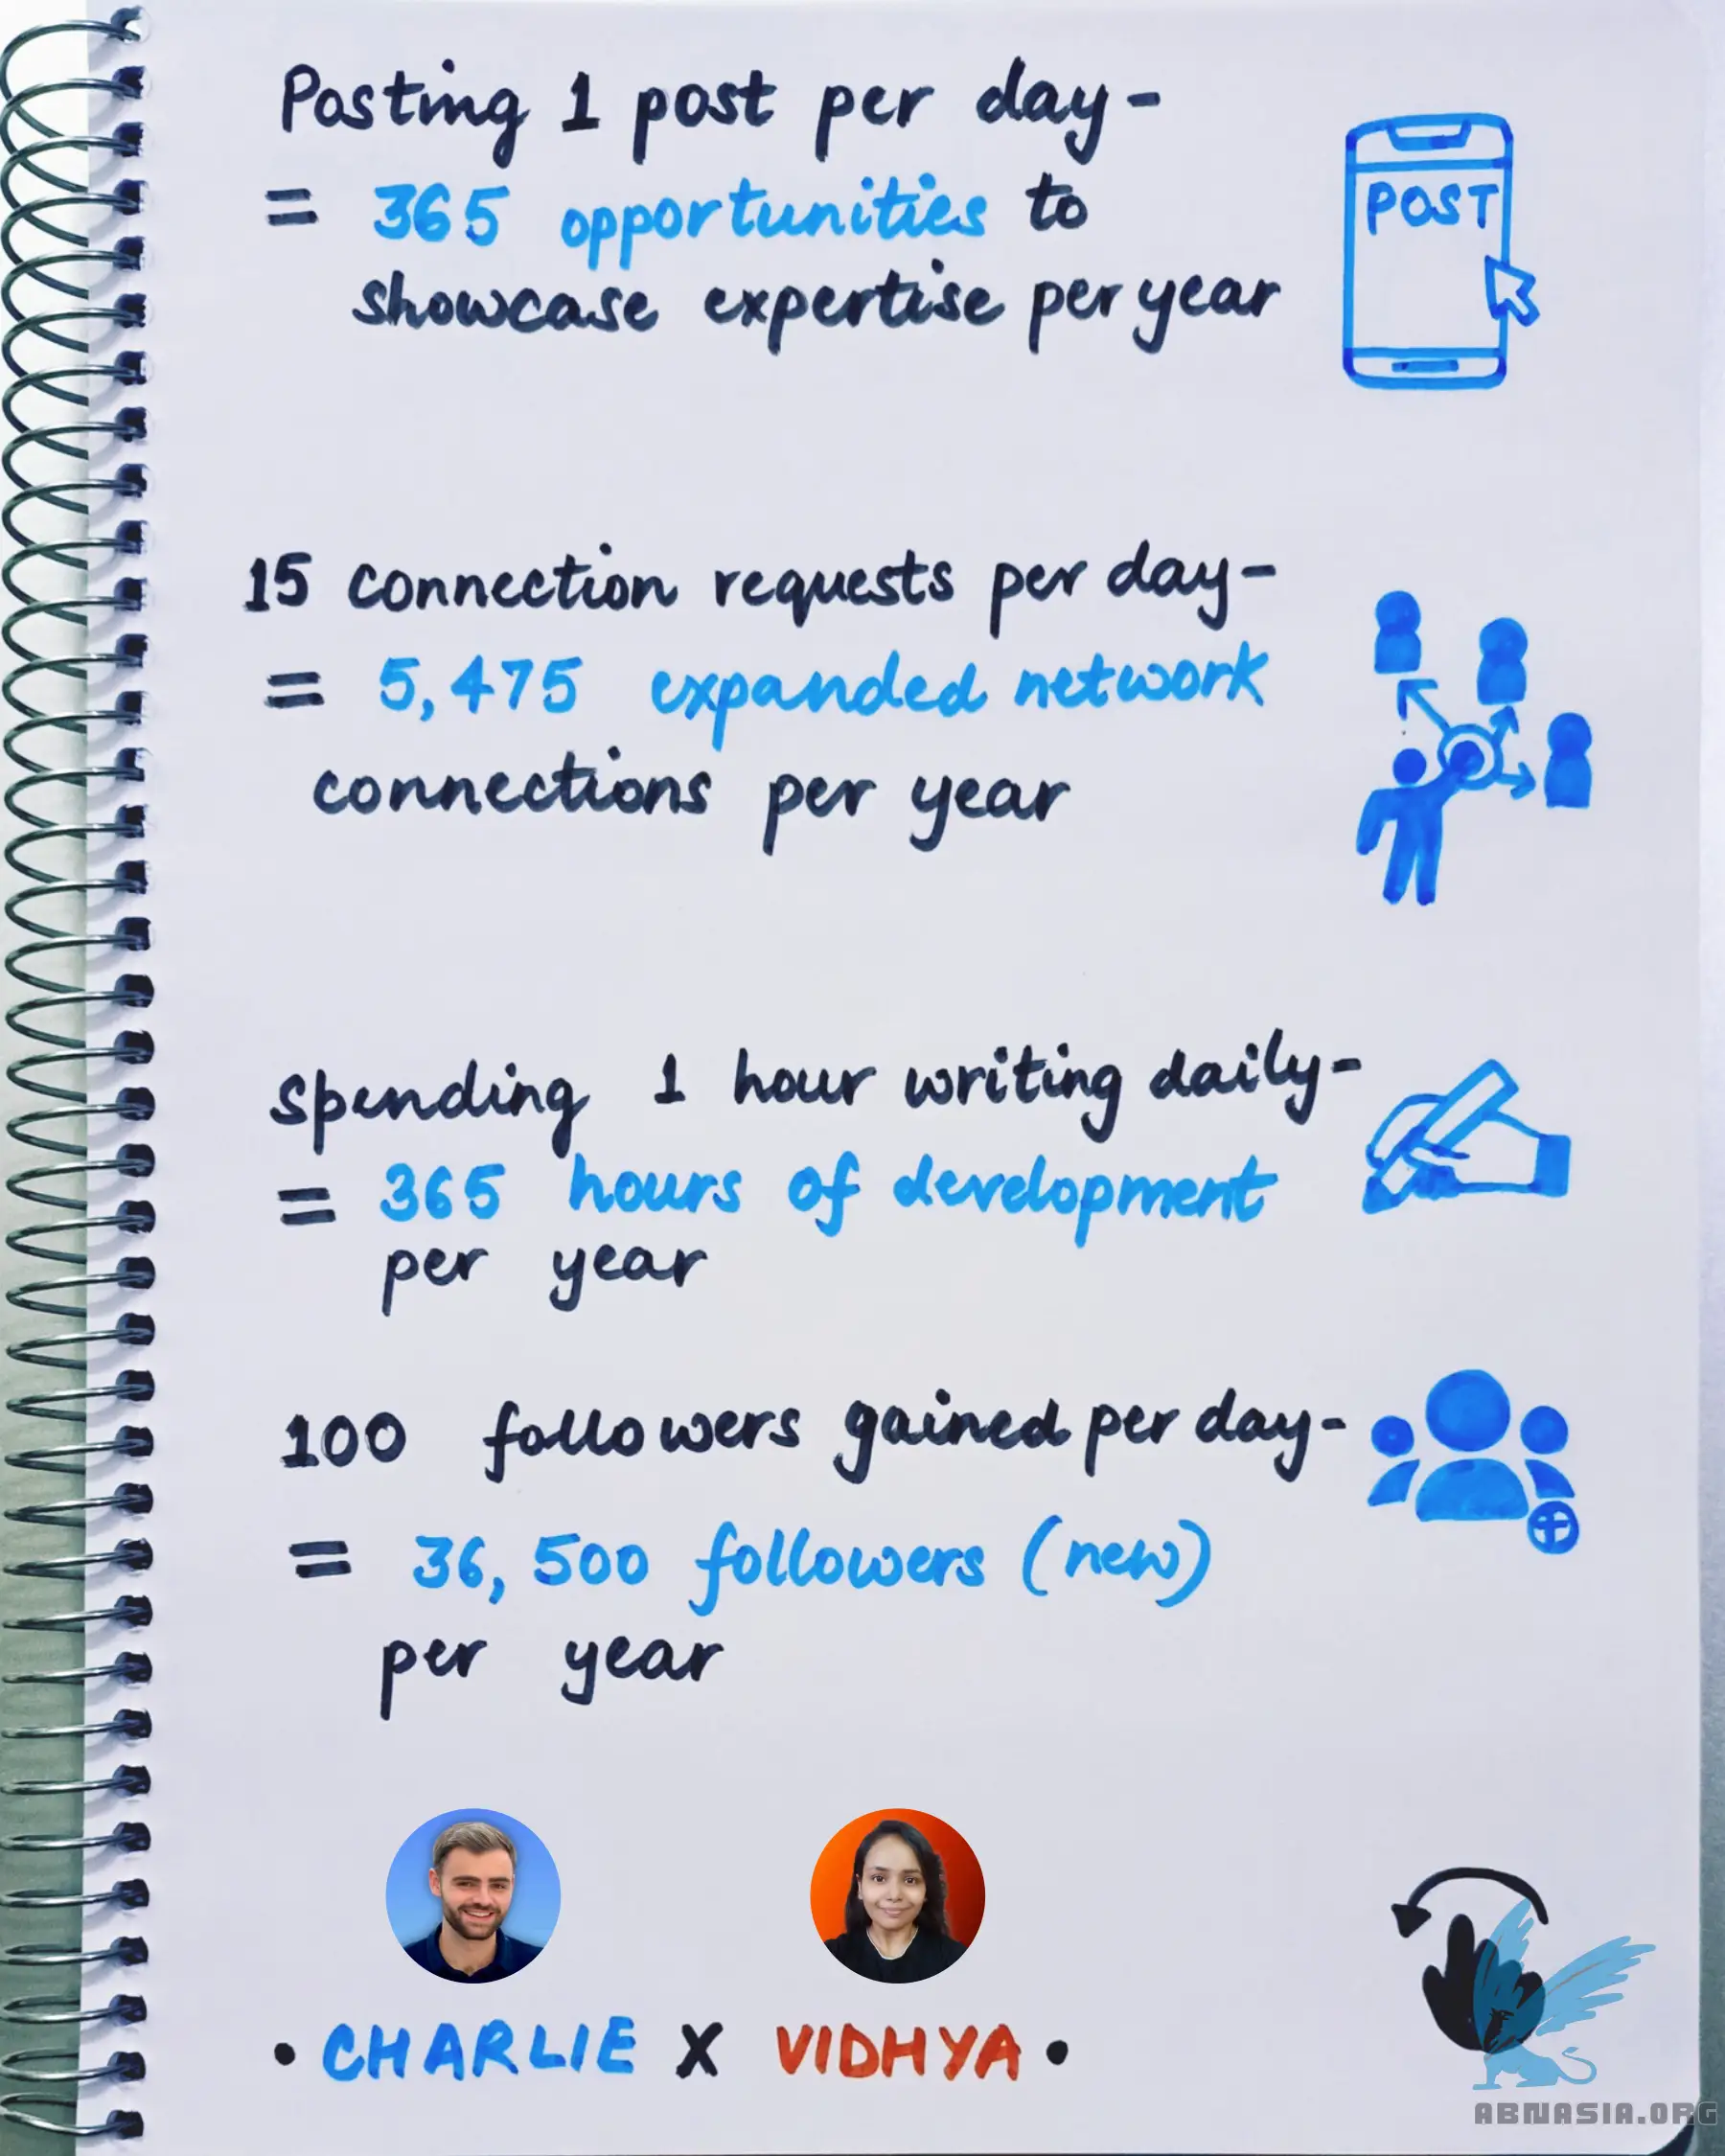 Posting 1 post per day-
= 365 opportunities to
showcase expertise per year
POST
15 connection requests per day-
= 5,475 expanded network
connections per year
Spending 1 hour writing daily-
= 365 hours of development
per year
100 followers gained per day-
= 36,500 followers (new)
per year
• CHARLIE X VIDHYA •
ABNASIA.ORG